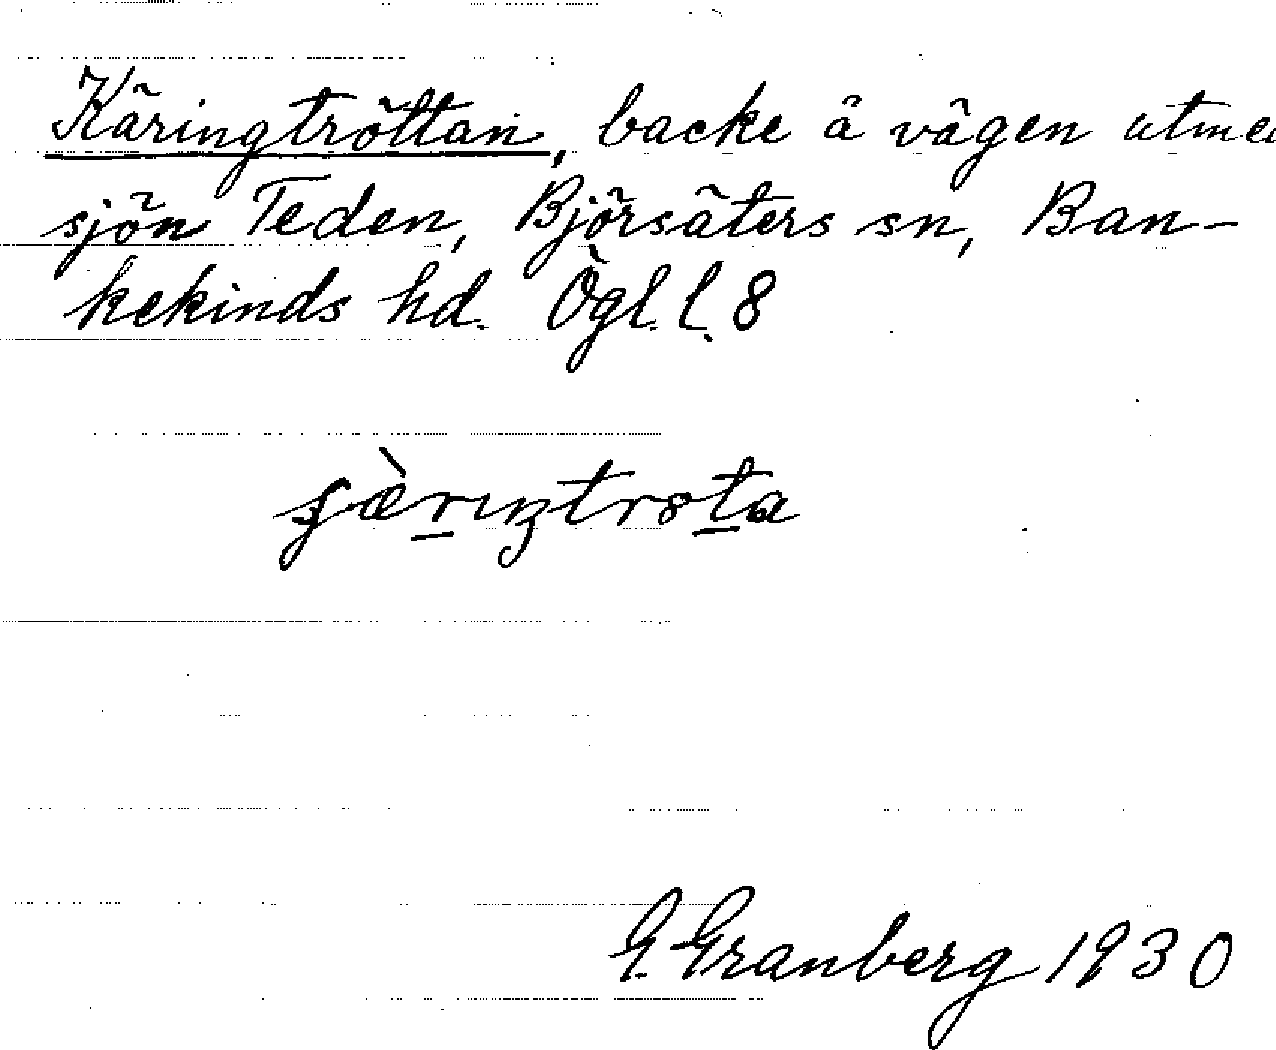 Käringtröttan, backe å vägen utmed
sjön Teden, Björsäters sn, Ban-
kekinds hd. Ögl. l. 8
G. Granberg 1930